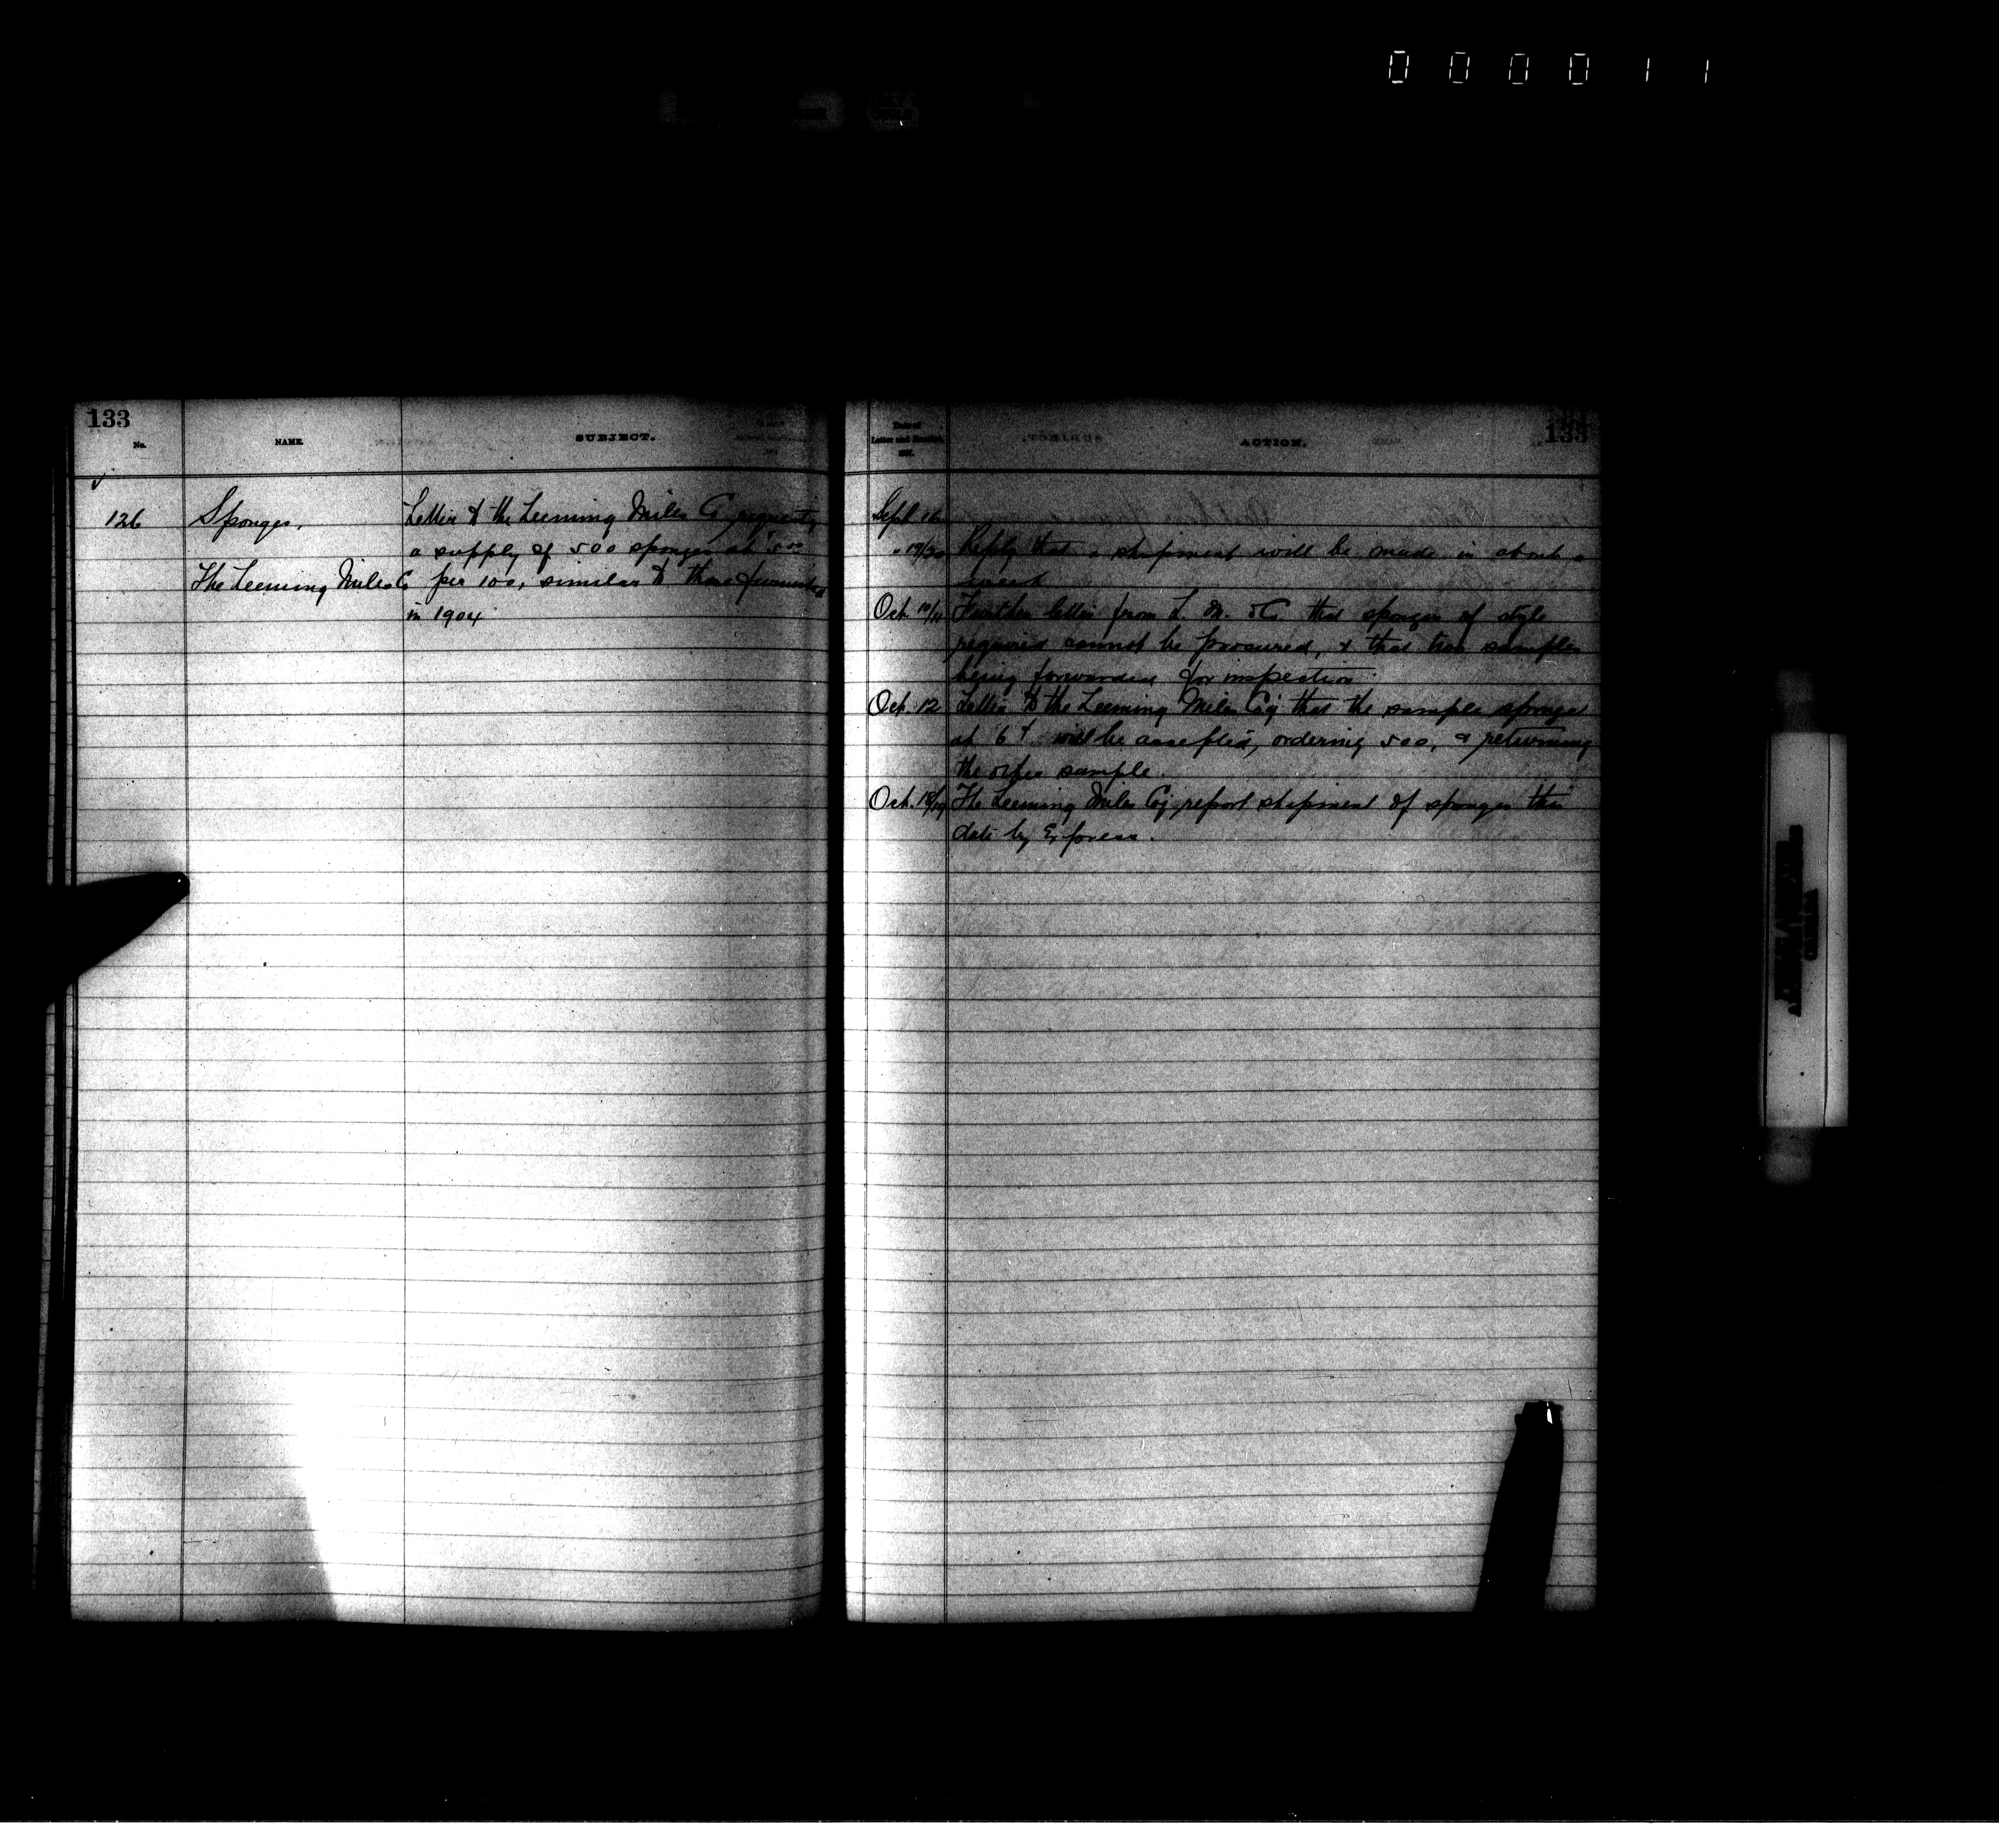 000011
133
No.
NAME.
SUBJECT.
126
Sponges.
The Leeming Miles Co
Letter to the Leeming Miles Co requesting
a supply of 500 sponges at 5.00
per 100, similar to those furnished
in 1904
133
Date of
Letter and
ACTION.
Sept 16
" 19/20 Reply that a shipment will be made in about a
week
Oct 10/11 Further letter from L. M. & Co that sponges of style
required cannot be procured, & that two samples
being forwarded for inspection
Oct. 12 Letter to the Leeming Miles Coy that the sample sponges
at 6 will be accepted, ordering 500, & returning
the other sample.
Oct. 18/19 The Leeming Miles Coy report shipment of sponges this
date by Express.
CANADA